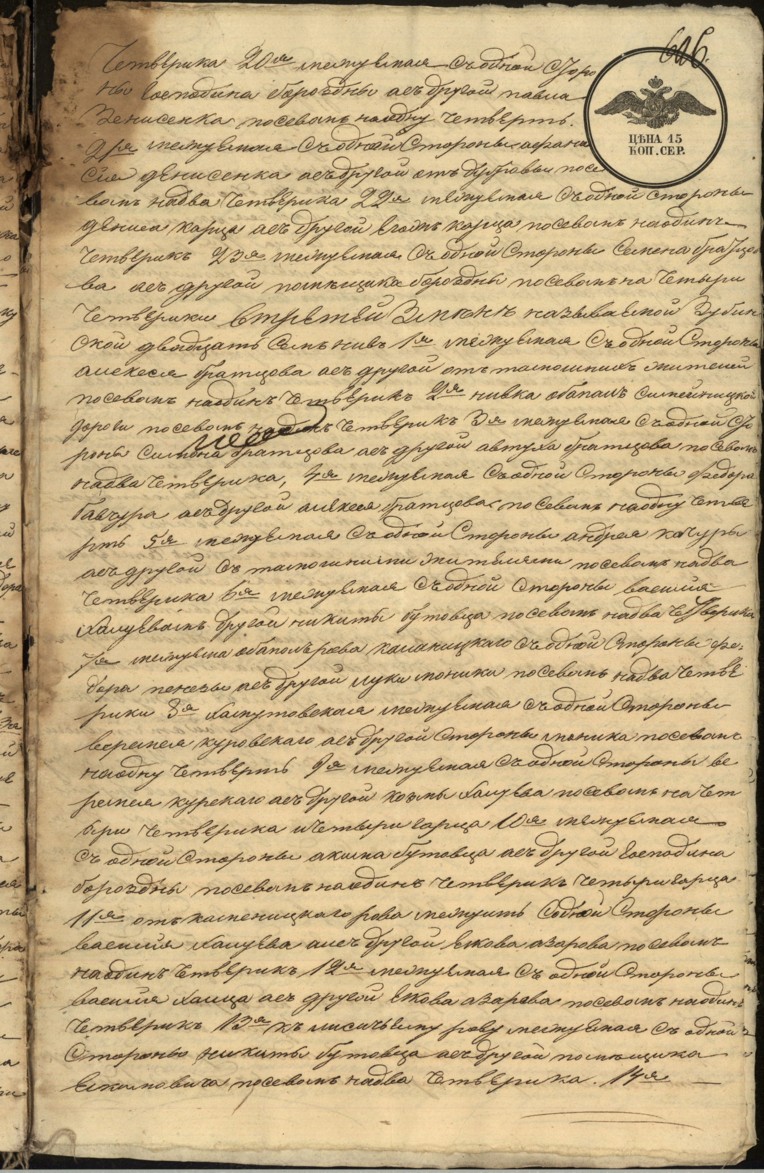 626.
ЦѢНА 15
КОП. СЕР.
Четверика 20я межуемая съ одной Сторо
ны Господина бороздны а съ другой павла
Денисенка посевомъ на одну Четверть.
21я межуемая Съ одной Стороны афана
сия денисенка а съ другой отъ бутовы посе
вомъ на два Четверика 22я межуемая Съ одной стороны
дениса карца а съ другой карца посевомъ на одинъ
Четверикъ 23я межуемая Съ одной Стороны Семена братцо
ва а съ другой помѣщика бороздны посевомъ на Четыри
Четверики Втретей Змѣнѣ называемой Зубин
ской двадцать Семь нивъ 1я межуемая Съ одной Стороны
алексея братцова а съ другой отъ тамошнихъ жителей
посевомъ на одинъ Четверикъ 2я нивка обаполъ
дороги посевомъ на одинъ Четверикъ 3я межуемая Съ одной Сто
роны Симона братцова а съ другой автуха братцова посевомъ
на два Четверика, 4я межуемая Съ одной Стороны Федора
бавтура а съ другой алексея братцова посевомъ на одну Четве
рть 5я межуемая Съ одной Стороны андрея качуры
а съ другой Съ тамошними жителями посевомъ на два
Четверика 6я межуемая Съ одной Стороны василия
другой никиты бутовца посевомъ на два Четверика
7я межуема обаполъ рова каменицкаго Съ одной Стороны Фе-
дора пенезы а съ другой луки моника посевомъ на два Четве
рики 8я межуемая Съ одной Стороны
веремея куровскаго а съ другой Стороны моника посевомъ
на одну Четверть 9я межуемая Съ одной Стороны ве
ремея курскаго а съ другой козмы Халуева посевомъ на Чет
ыри Четверика и Четыри гарца 10я межуемая
Съ одной Стороны акима бутовца а съ другой Господина
бороздны посевомъ на одинъ Четверикъ Четыри гарца
11я отъ каменицкаго рова межуитъ Содной Стороны
василия Халуева а съ другой Якова азарова посевомъ
на одинъ Четверикъ 12я межуемая Съ одной Стороны
василия а съ другой Якова азарова посевомъ на одинъ
Четверикъ 13я къ лисичьему рову межуемая Съ одной
Стороны никиты бутовца а съ другой помѣщика
посевомъ на два Четверика. 14я